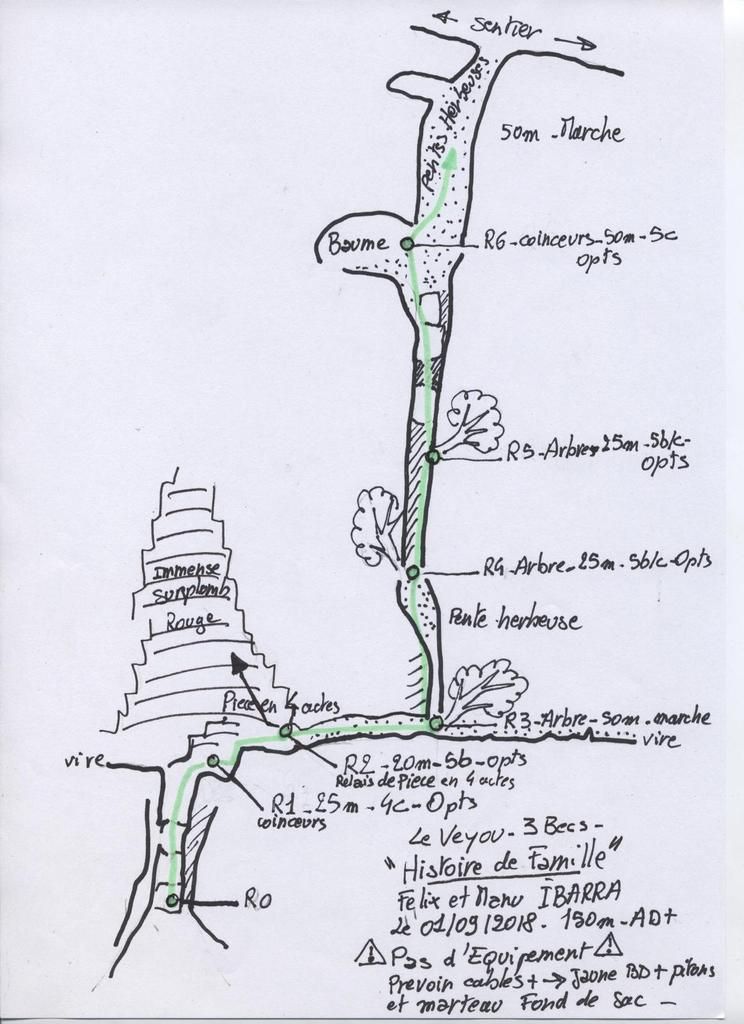 Sentier
Pentes Herbeuses
50m - Marche
Baume
R6 - coinceurs - 50m - 5c
Opts
R5 - Arbre - 25m - 5b/c -
Opts
R4 - Arbre - 25m - 5b/c - Opts
Immense
surplomb
Rouge
Pente herbeuse
Piece en 4 actes
R3 - Arbre - 50m - marche
vire
vire
R2 - 20m - 5b - Opts
Relais de Piece en 4 actes
R1 - 25m - 4c - Opts
coinceurs
R0
Le Veyou - 3 Becs -
"Histoire de Famille"
Felix et Manu IBARRA
Le 01/09/2018 - 150m - AD+
⚠ Pas d'Equipement ⚠
Prevoir cables + → Jaune BD + pitons
et marteau Fond de Sac -